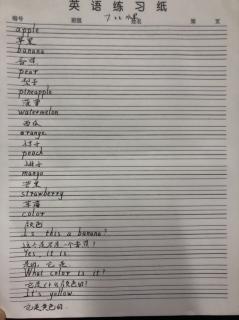 英语练习纸
编号 班级 姓名 第 页
apple
苹果
banana
香蕉
pear
梨子
pineapple
菠萝
watermelon
西瓜
orange
橙子
peach
桃子
mango
芒果
strawberry
草莓
color
颜色
Is this a banana?
这个是不是一个香蕉?
Yes, it is
是的,它是
What color is it?
它是什么颜色的?
It's yellow
它是黄色的